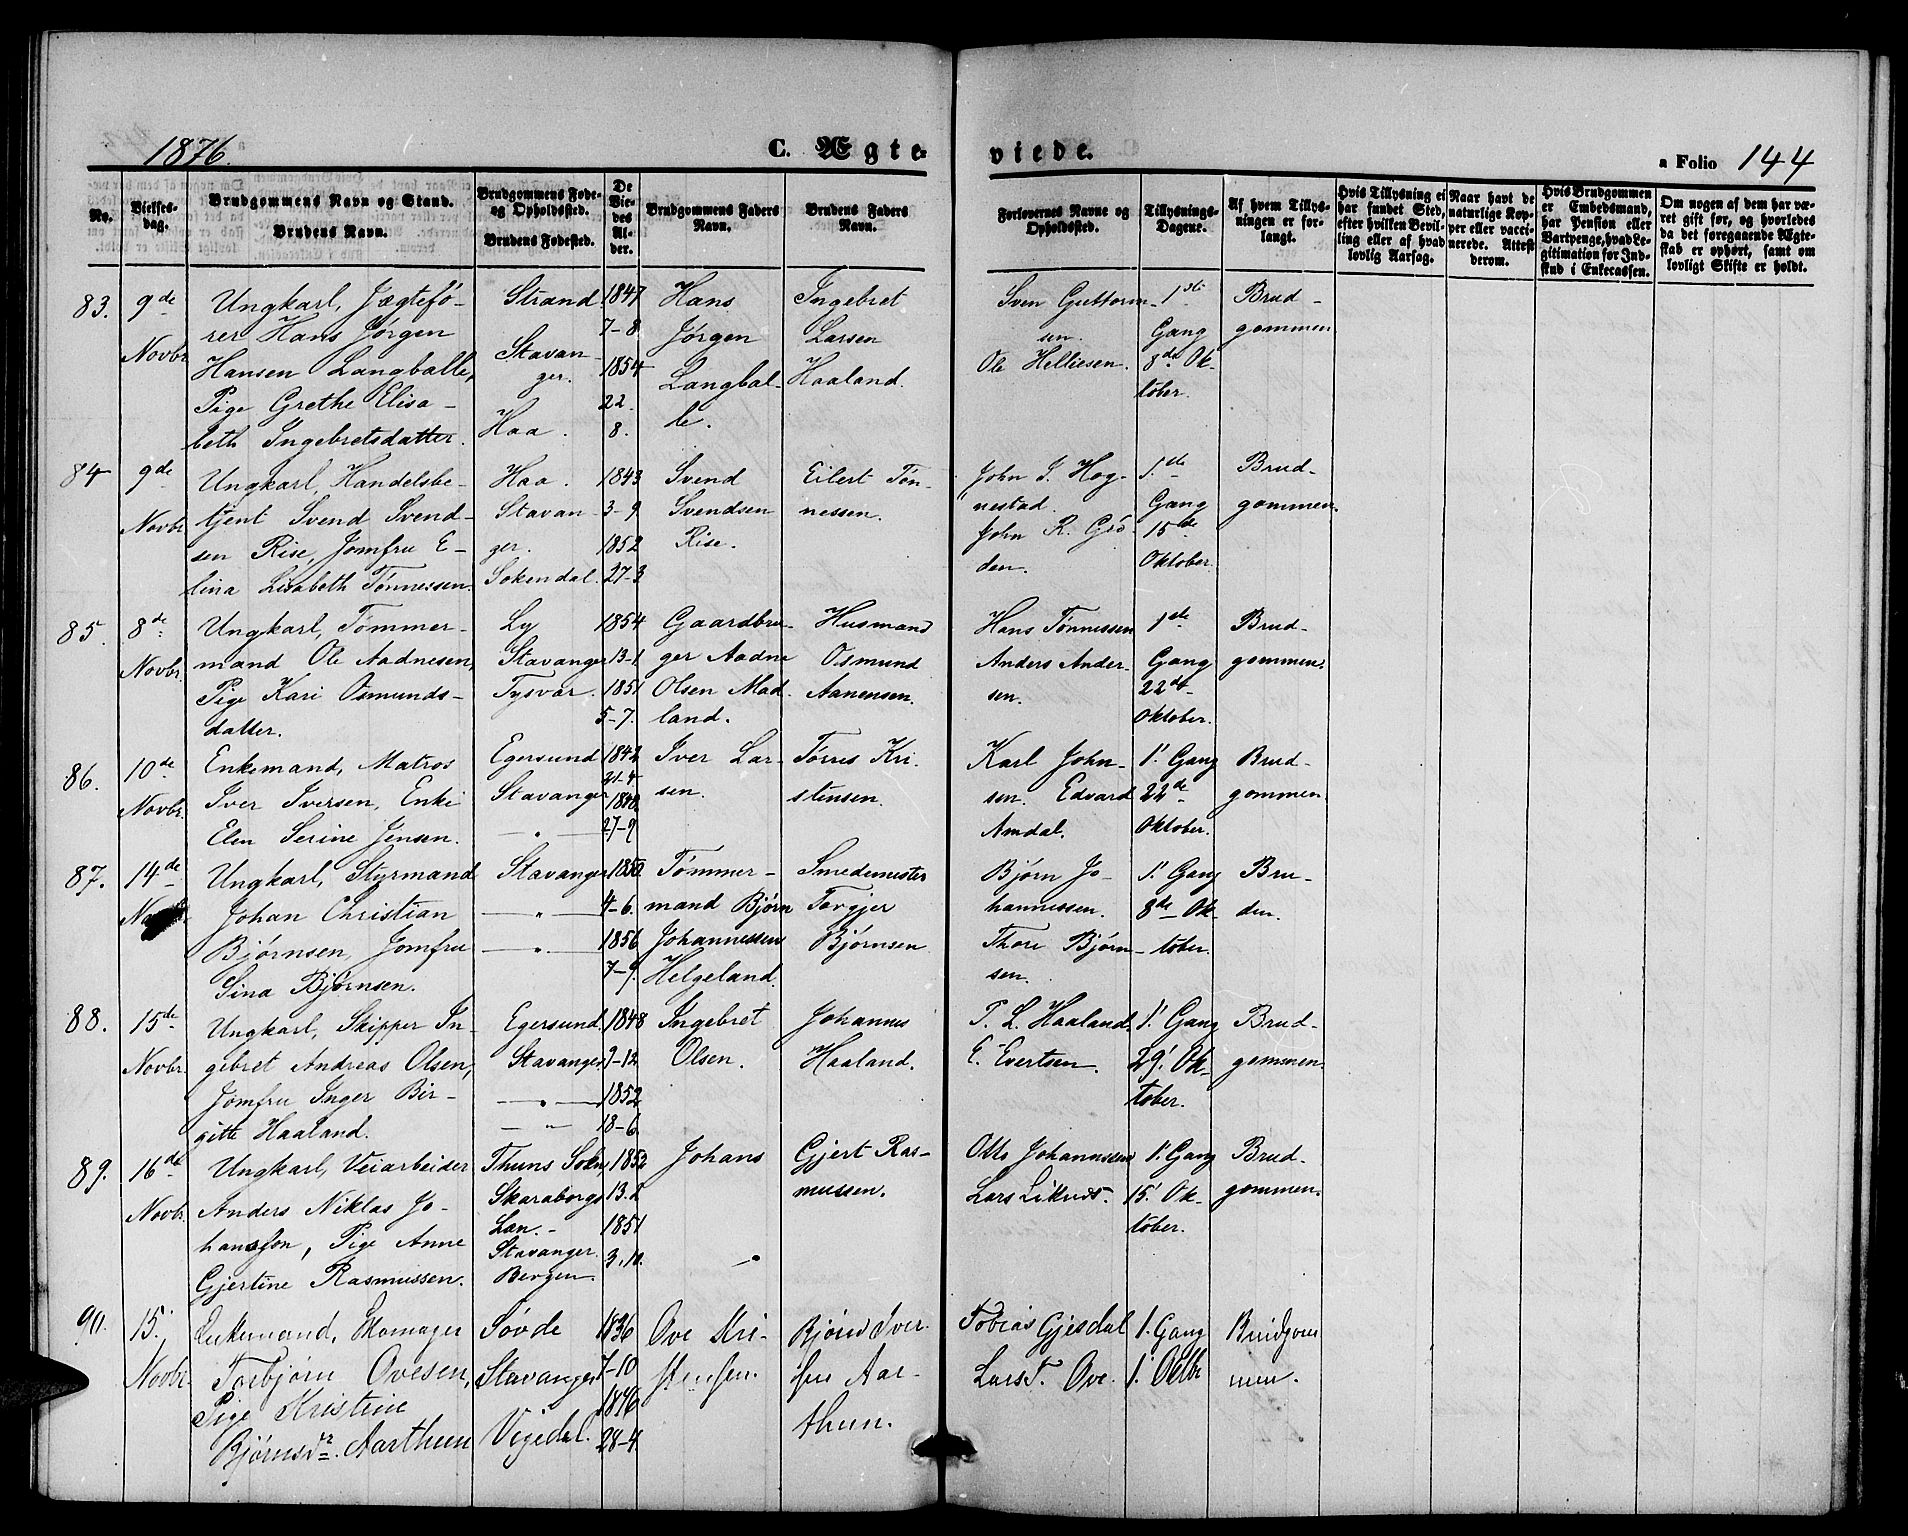 1876.
C. Ægte-
viede.
a Folio 144
No.
Vielses-
dag.
Brudgommens Navn og Stand.
Brudens Navn.
Brudgommens Føde-
og Opholdssted.
Brudens Fødested.
De
Vie-
des
Al-
der.
Brudgommens Faders
Navn.
Brudens Faders
Navn.
Forlovernes Navne og
Opholdssted.
Tillysnings-
Dagene.
Af hvem Tillys-
ningen er for-
langt.
Hvis Tillysning ei
har fundet Sted,
efter hvilken Bevil-
ling eller af hvad
lovlig Aarsag.
Naar havt de
naturlige Kop-
per eller vacci-
nerede. Attest
derom.
Hvis Brudgommen
er Embedsmand,
har Pension eller
Vartpenge, hvad Le-
gitimation for Ind-
skud i Enkecassen.
Om nogen af dem har væ-
ret gift før, og hvorledes
da det foregaaende Ægte-
skab er ophørt, samt om
lovligt Skifte er holdt.
83.
9de
Novbr
Ungkarl, Jægtefø-
rer Hans Jørgen
Hansen Langballe,
Pige Grethe Elisa-
beth Ingebretsdatter.
Strand
Stavan-
ger.
Haa.
1847
7-8
1854
22.
8.
Hans
Jørgen
Langbal-
le.
Ingebret
Larsen
Haaland.
Sven Guttorm-
sen.
Ole Helliesen.
1ste
Gang
8de Ok-
tober.
Brud-
gommen
84
9de
Novbr
Ungkarl, Handelsbe-
tjent Svend Svend-
sen Rise, Jomfru E-
lina Lisabeth Tønnessen.
Haa.
Stavan-
ger.
Sokendal.
1843
3-9
1852
27-3
Svend
Svendsen
Rise.
Eilert Tøn-
nessen.
John I. Hog-
nestad.
John R. Grø-
den.
1ste
Gang
15de
Oktober.
Brud-
gommen.
85.
8de
Novbr.
Ungkarl, Tømmer-
mand Ole Aadnesen,
Pige Kari Osmunds-
datter.
Ly
Stavanger
Tysvær.
1854
13-1
1851
5-7.
Gaardbru-
ger Aadne
Olsen Mad-
land.
Husmand
Osmund
Aanensen.
Hans Tønnessen
Anders Ander-
sen.
1ste
Gang
22de
Oktober.
Brud-
gommen.
86.
10de
Novbr.
Enkemand, Matros
Iver Iversen, Enke
Elen Serine Jensen.
Egersund
Stavanger
— " —
1842
21-4
1840.
27-9
Iver Lar-
sen.
Tørres Kri-
stensen.
Karl John-
sen. Edvard
Amdal.
1' Gang
22de
Oktober.
Brud-
gommen.
87.
14de
Ungkarl, Styrmand
Johan Christian
Bjørnsen, Jomfru
Sina Bjørnsen.
Stavanger
— " —
— " —
1850.
4-6.
1856
7-9.
Tømmer-
mand Bjørn
Johannessen
Helgeland.
Smedemester
Torgjer
Bjørnsen
Bjørn Jo-
hannessen.
Thore Bjørn-
sen.
1' Gang
8de Ok-
tober.
Bru-
den.
88.
15de
Novbr.
Ungkarl, Skipper In-
gebret Andreas Olsen,
Jomfru Inger Bir-
gitte Haaland.
Egersund.
Stavanger
— " —
— " —
1848
9-12
1852
18-6.
Ingebret
Olsen.
Johannes
Haaland.
T. L. Haaland.
E. Evertsen.
1' Gang
29' Ok-
tober.
Brud-
gommen.
89.
16de
Novbr.
Ungkarl, Veiarbeider
Anders Niklas Jo-
hansson, Pige Anne
Gjertine Rasmussen.
Thuns Sokn,
Skaraborgs
Lan.-
Stavanger.
Bergen.
1852
13.2
1851
3.10.
Johans
"
Gjert Ras-
mussen.
Otto Johannessen
Lars
1' Gang
15' Ok-
tober.
Brud-
gommen.
90.
15'
Novbr.
Enkemand, Skomager
Torbjørn Ovesen,
Pige Kristine
Bjørnsdr. Aarthun
Søvde
Stavanger
Vigedal.
1836
7-10
1846
28-4.
Ove Kri-
stensen.
Bjørn Iver-
sen Aar-
thun.
Tobias Gjesdal
Lars T. Ove.
1' Gang
1' Octbr
Brudgom
men.